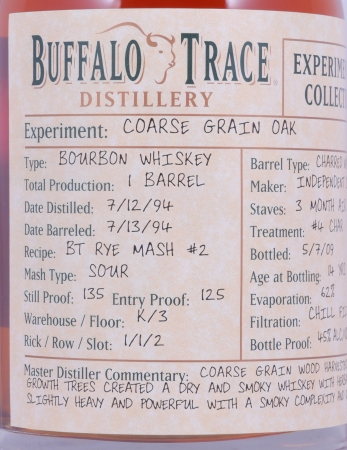 BUFFALO TRACE
DISTILLERY
EXPERIME
COLLECT
Experiment: COARSE GRAIN OAK
Type: BOURBON WHISKEY
Total Production: 1 BARREL
Date Distilled: 7/12/94
Date Barreled: 7/13/94
Recipe: BT RYE MASH #2
Mash Type: SOUR
Still Proof: 135 Entry Proof: 125
Warehouse / Floor: K/3
Rick / Row / Slot: 1/1/2
Barrel Type: CHARRED
Maker: INDEPENDENT
Staves: 3 MONTH
Treatment: #4 CHAR
Bottled: 5/7/09
Age at Bottling: 14
Evaporation: 62%
Filtration: CHILL
Bottle Proof: 45%
Master Distiller Commentary: COARSE GRAIN WOOD
GROWTH TREES CREATED A DRY AND SMOKY WHISKEY WITH
SLIGHTLY HEAVY AND POWERFUL WITH A SMOKY COMPLEXITY